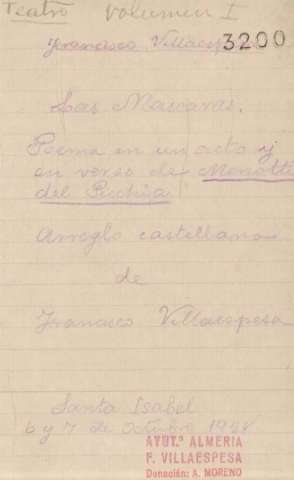 Teatro Volumen I
Francisco Villaespesa 3200
Las Mascaras.
Poema en un acto y
en verso de Menotti
del Picchia
Arreglo castellano
de
Francisco Villaespesa
Santa Isabel
6 y 7 de Octubre
AYUT.º ALMERIA
F. VILLAESPESA
Donación: A. MORENO